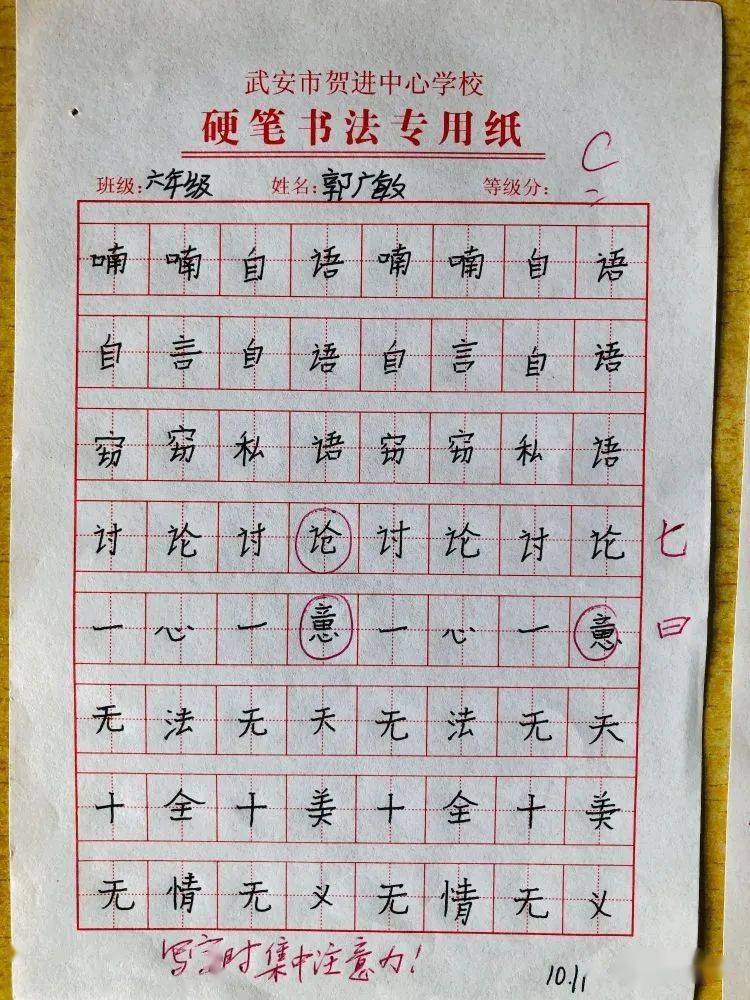 武安市贺进中心学校
硬笔书法专用纸
C
班级:六年级 姓名:郭广敏 等级分:
喃喃自语喃喃自语
自言自语自言自语
窃窃私语窃窃私语
讨论讨论讨论讨论 七
一心一意一心一意 曰
无法无天无法无天
十全十美十全十美
无情无义无情无义
写字时集中注意力!
10.11